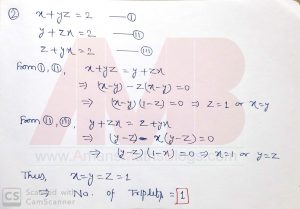 ② x+yz = 2 — ①
y + zx = 2 — ②
z + yx = 2 — ③
From ①, ②, x+yz = y+zx
⇒ (x-y) - z(x-y) = 0
⇒ (x-y)(1-z) = 0 ⇒ z=1 or x=y
From ②, ③, y+zx = z+yx
⇒ (y-z) - x(y-z) = 0
⇒ (y-z)(1-x) = 0 ⇒ x=1 or y=z
Thus, x=y=z=1
⇒ No. of triplets = 1
CS Scanned with
CamScanner